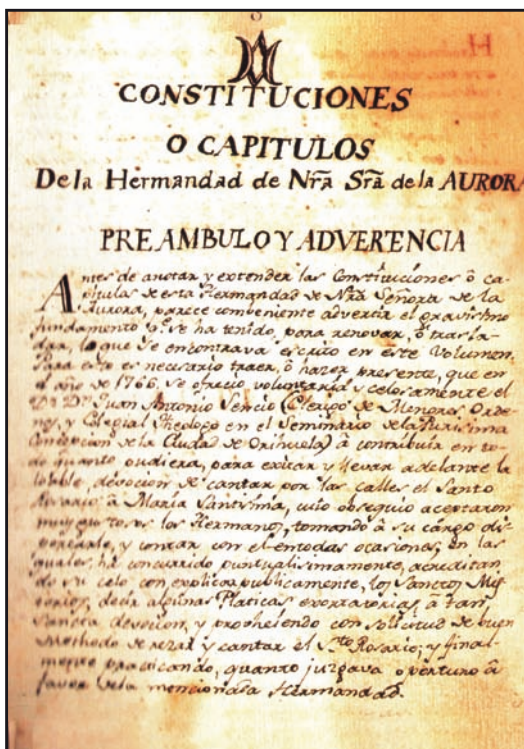 CONSTITUCIONES
O CAPITULOS
De la Hermandad de Nrã Srã de la AURORA
PREAMBULO Y ADVERTENCIA
Antes de anotar y extender las Constituciones ô ca-
pitulos de esta Hermandad de Nrã Señora de la
Aurora, parece combeniente advertir el gravissimo
fundamento q.e se ha tenido, para renovar, ô trasla-
dar, lo que se encontrava escrito en este Volumen.
Para esto es necesario traer, ô hazer presente, que en
el año de 1766, se ofrecio voluntaria y celosamente el
D.r D.n Juan Antonio (Clerigo de Menores Orde-
nes, y Colegial Theologo en el Seminario de la Purisima
Concepcion de la Ciudad de Orihuela) â contribuir en to-
do quanto pudiera, para exitar y llevar adelante la
loable, devocion de cantar por las calles el Santo
Rosario â Maria Santisima, cuio obsequio aceptaron
muy los Hermanos, tomando â su cargo
y contar con el en todas ocasiones, en las
quales, hâ concurrido puntualisimamente, acreditan
do su celo con explicar publicamente, los Sanctos Mis-
terios, decir algunas Platicas exortatorias, â tan
Sancta devocion, y proveiendo con solicitud de buen
Methodo de rezar y cantar el S.to Rosario; y final-
mente practicando, quanto juzgava oportuno â
favor de la mencionada Hermandad.